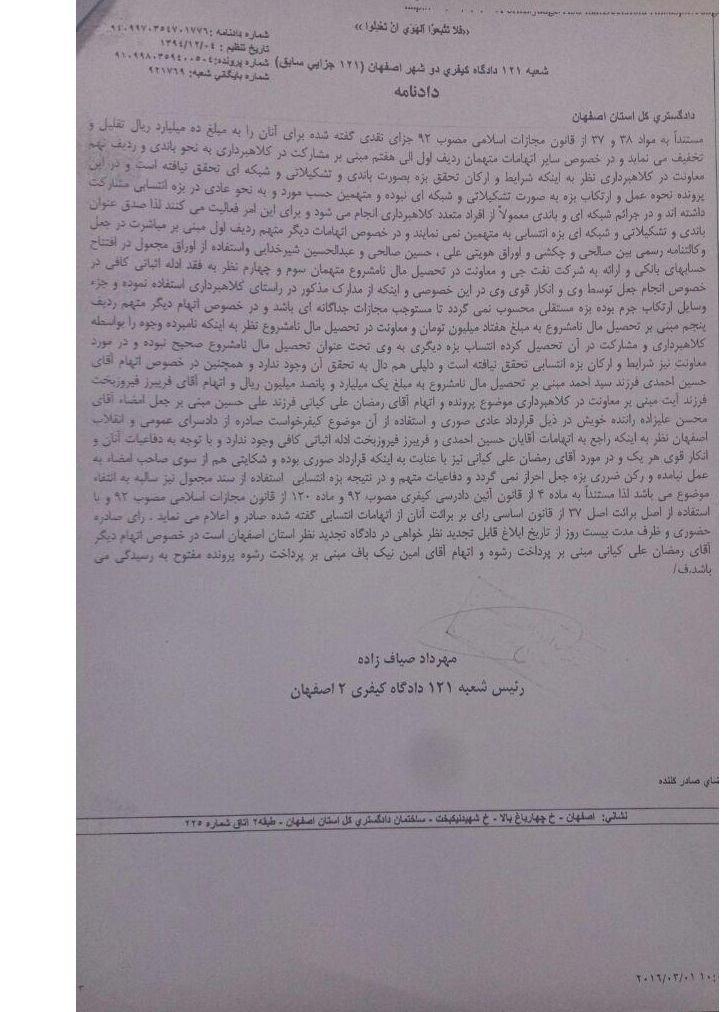 «فلا تتبعوا الهوي ان تعدلوا»
شماره دادنامه :۹۴۰۹۹۷۰۳۵۴۷۰۱۷۷۶
تاریخ تنظیم : ۱۳۹۴/۱۲/۰۴
شماره پرونده:۹۱۰۹۹۸۰۳۵۹۴۰۰۵۰۴
شماره بایگانی شعبه: ۹۲۱۷۶۹
شعبه ۱۲۱ دادگاه کیفري دو شهر اصفهان (۱۲۱ جزایي سابق)
دادنامه
دادگستري کل استان اصفهان
مستنداً به مواد ۳۸ و ۳۷ از قانون مجازات اسلامی مصوب ۹۲ جزای نقدی گفته شده برای آنان را به مبلغ ده میلیارد ریال تقلیل و
تخفیف می نماید و در خصوص سایر اتهامات متهمان ردیف اول الی هفتم مبنی بر مشارکت در کلاهبرداری به نحو باندی و ردیف نهم
معاونت در کلاهبرداری نظر به اینکه شرایط و ارکان تحقق بزه بصورت باندی و تشکیلاتی و شبکه ای تحقق نیافته است و در این
پرونده نحوه عمل و ارتکاب بزه به صورت تشکیلاتی و شبکه ای نبوده و متهمین حسب مورد و به نحو عادی در بزه انتسابی مشارکت
داشته اند و در جرائم شبکه ای و باندی معمولاً از افراد متعدد کلاهبرداری انجام می شود و برای این امر فعالیت می کنند لذا صدق عنوان
باندی و تشکیلاتی و شبکه ای بزه انتسابی به متهمین نمی نمایند و در خصوص اتهامات دیگر متهم ردیف اول مبنی بر مباشرت در جعل
وکالتنامه رسمی بین صالحی و چکشی و اوراق هویتی علی ، حسین صالحی و عبدالحسین شیرخدایی واستفاده از اوراق مجعول در افتتاح
حسابهای بانکی و ارائه به شرکت نفت جی و معاونت در تحصیل مال نامشروع متهمان سوم و چهارم نظر به فقد ادله اثباتی کافی در
خصوص انجام جعل توسط وی و انکار قوی وی در این خصوصی و اینکه از مدارک مذکور در راستای کلاهبرداری استفاده نموده و جزء
وسایل ارتکاب جرم بوده بزه مستقلی محسوب نمی گردد تا مستوجب مجازات جداگانه ای باشد و در خصوص اتهام دیگر متهم ردیف
پنجم مبنی بر تحصیل مال نامشروع به مبلغ هفتاد میلیون تومان و معاونت در تحصیل مال نامشروع نظر به اینکه نامبرده وجوه را بواسطه
کلاهبرداری و مشارکت در آن تحصیل کرده انتساب بزه دیگری به وی تحت عنوان تحصیل مال نامشروع صحیح نبوده و در مورد
معاونت نیز شرایط و ارکان بزه انتسابی تحقق نیافته است و دلیلی هم دال به تحقق آن وجود ندارد و همچنین در خصوص اتهام آقای
حسین احمدی فرزند سید احمد مبنی بر تحصیل مال نامشروع به مبلغ یک میلیارد و پانصد میلیون ریال و اتهام آقای فریبرز فیروزبخت
فرزند آیت مبنی بر معاونت در کلاهبرداری موضوع پرونده و اتهام آقای رمضان علی کیانی فرزند علی حسین مبنی بر جعل امضاء آقای
محسن علیزاده راننده خویش در ذیل قرارداد عادی صوری و استفاده از آن موضوع کیفرخواست صادره از دادسرای عمومی و انقلاب
اصفهان نظر به اینکه راجع به اتهامات آقایان حسین احمدی و فریبرز فیروزبخت ادله اثباتی کافی وجود ندارد و با توجه به دفاعیات آنان و
انکار قوی هر یک و در مورد آقای رمضان علی کیانی نیز با عنایت به اینکه قرارداد صوری بوده و شکایتی هم از سوی صاحب امضاء به
عمل نیامده و رکن ضرری بزه جعل احراز نمی گردد و دفاعیات متهم و در نتیجه بزه انتسابی استفاده از سند مجعول نیز سالبه به انتفاء
موضوع می باشد لذا مستنداً به ماده ۴ از قانون آئین دادرسی کیفری مصوب ۹۲ و ماده ۱۲۰ از قانون مجازات اسلامی مصوب ۹۲ و با
استفاده از اصل برائت اصل ۳۷ از قانون اساسی رای بر برائت آنان از اتهامات انتسابی گفته شده صادر و اعلام می نماید . رای صادره
حضوری و ظرف مدت بیست روز از تاریخ ابلاغ قابل تجدید نظر خواهی در دادگاه تجدید نظر استان اصفهان است در خصوص اتهام دیگر
آقای رمضان علی کیانی مبنی بر پرداخت رشوه و اتهام آقای امین نیک باف مبنی بر پرداخت رشوه پرونده مفتوح به رسیدگی می
باشد.ف/
مهرداد صیاف زاده
رئیس شعبه ۱۲۱ دادگاه کیفری ۲ اصفهان
صادر کننده
نشاني: اصفهان - خ چهارباغ بالا - خ شهیدنیکبخت - ساختمان دادگستري کل استان اصفهان - طبقه۲ اتاق شماره ۲۲۵
۲۰۱۶/۰۳/۰۱ ۱۰: